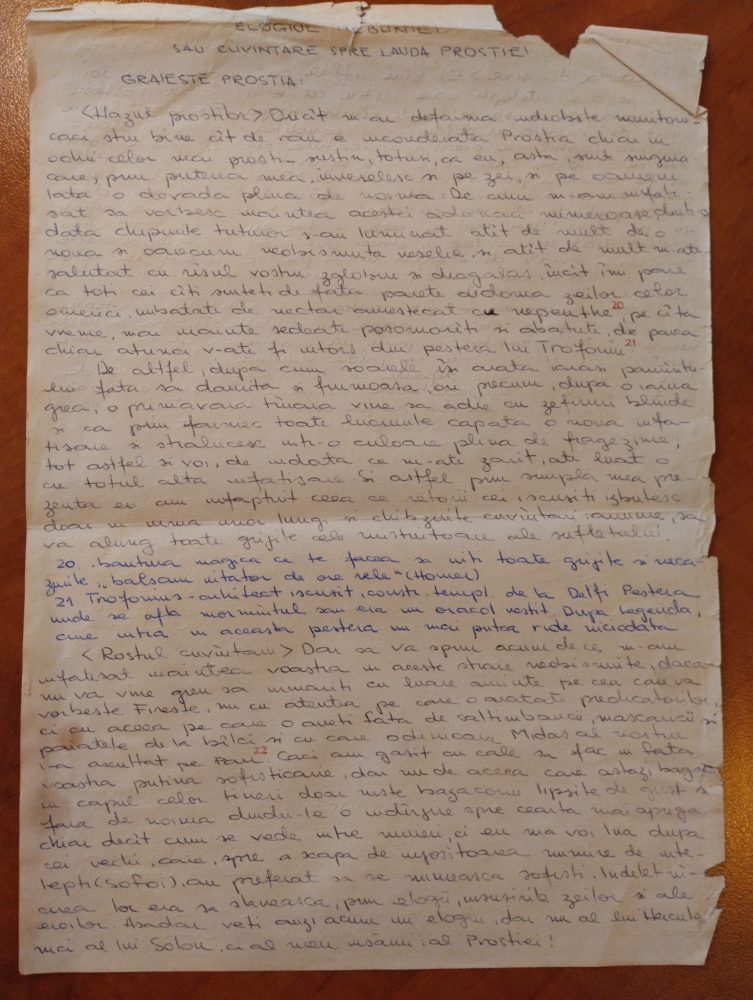 ELOGIUL NEBUNIEI
SAU CUVINTARE SPRE LAUDA PROSTIEI
GRAIESTE PROSTIA:
<Hazul prostilor> Oricit m-au defaima indeobste muritorii
caci stiu bine cit de rau e incondeiata Prostia chiar in
ochii celor mai prosti sustin, totusi, ca eu, asta, sint singura
care, prin puterea mea, inveselesc si pe zei, si pe oameni
Iata o dovada plina de noima: De cum m-am infati-
sat sa vorbesc inaintea acestei adunari numeroase, dintr-o
data chipurile tuturor s-au luminat atit de mult de o
noua si oarecum neobisnuita veselie, si atit de mult m-ati
salutat cu risul vostru zglobiu si dragalas, incit imi pare
ca toti cei citi sinteti de fata pareti aidoma zeilor celor
omerici, imbatati de nectar amestecat cu nepenthe20, pe cita
vreme, mai inainte sedeati posomoriti si abatuti, de parca
chiar atunci v-ati fi intors din pestera lui Trofoniu21
De altfel, dupa cum soarele isi arata iarasi pamintu-
lui fata sa daurita si frumoasa, ori precum, dupa o iarna
grea, o primavara tinara vine sa adie cu zefirii blinde
si ca prin farmec toate lucrurile capata o noua infa-
tisare si stralucesc intr-o culoare plina de fragezime,
tot astfel si voi, de indata ce m-ati zarit, ati luat o
cu totul alta infatisare Si astfel prin simpla mea pre-
zenta eu am infaptuit ceea ce retorii cei iscusiti izbutesc
doar in urma unor lungi si chibzuite cuvintari: anume, sa
va alung toate grijile cele mistuitoare ale sufletului.
20. bautura magica ce te facea sa uiti toate grijile si neca-
zurile, "balsam uitator de ore rele" (Homer)
21 Trofonius - arhitect iscusit, constr. templ. de la Delfi Pestera
unde se afla mormintul sau era un oracol vestit. Dupa legenda,
cine intra in aceasta pestera nu mai putea ride niciodata
<Rostul cuvintarii> Dar sa va spun acum de ce m-am
infatisat inaintea voastra in aceste straie neobisnuite, daca
nu va vine greu sa urmariti cu luare aminte pe cea care va
vorbeste Fireste, nu cu atentia pe care o aratati predicatorilor,
ci cu aceea pe care o aveti fata de saltimbanci, mascaricii si
paiatele de la bilci si cu care odinioara Midas al nostru
l-a ascultat pe Pan22. Caci am gasit cu cale sa fac in fata
voastra putina sofisticarie, dar nu de aceea care astazi baga
in capul celor tineri doar niste bazaconii lipsite de gust si
fara de noima dindu-le o indirjire spre cearta mai apriga
chiar decit cum se vede intre muieri, ci eu ma voi lua dupa
cei vechi, care, spre a scapa de injositoarea numire de inte-
lepti (sofoi), au preferat sa se numeasca sofisti. Indeletni-
cirea lor era sa slaveasca, prin elogii, insusirile zeilor si ale
eroilor. Asadar veti auzi acum un elogiu, dar nu al lui Hercule
nici al lui Solon, ci al meu insami: al Prostiei!